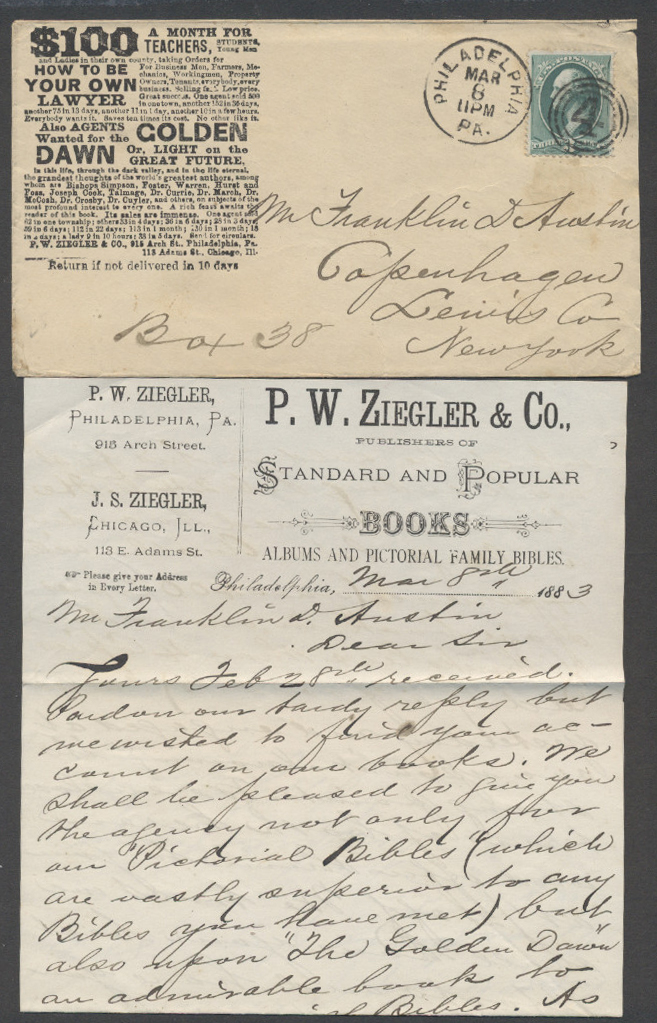 $100 A MONTH FOR
TEACHERS, STUDENTS,
Young Men
and Ladies in their own county, taking Orders for
HOW TO BE For Business Men, Farmers, Me-
chanics, Workingmen, Property
YOUR OWN Owners, Tenants, everybody, every
business. Selling fast. Low price.
LAWYER Great success. One agent sold 500
in one town, another 152 in 36 days,
another 75 in 13 days, another 11 in 1 day, another 10 in a few hours.
Everybody wants it. Saves ten times its cost. No other like it.
Also AGENTS
Wanted for the GOLDEN
DAWN Or, LIGHT on the
GREAT FUTURE.
In this life, through the dark valley, and in the life eternal,
the grandest thoughts of the world's greatest authors, among
whom are Bishops Simpson, Foster, Warren, Hurst and
Foss, Joseph Cook, Talmage, Dr. Currie, Dr. March, Dr.
McCosh, Dr. Crosby, Dr. Cuyler, and others, on subjects of the
most profound interest to every one. A rich feast awaits the
reader of this book. Its sales are immense. One agent sold
62 in one township; others 53 in 4 days; 36 in 6 days; 25 in 3 days;
59 in 6 days; 112 in 22 days; 113 in 1 month; 150 in 1 month; 18
in 2 days; a lady 9 in 10 hours; 38 in 5 days. Send for circulars.
P. W. ZIEGLER & CO., 915 Arch St., Philadelphia, Pa.
113 Adams St., Chicago, Ill.
Return if not delivered in 10 days
PHILADELPHIA
MAR
8
11PM
PA.
Mr Franklin D Austin
Copenhagen
Lewis Co
New York
Box 38
P. W. ZIEGLER,
PHILADELPHIA, PA.
915 Arch Street.
J. S. ZIEGLER,
CHICAGO, ILL.,
113 E. Adams St.
Please give your Address
in Every Letter.
P. W. ZIEGLER & CO.,
PUBLISHERS OF
STANDARD AND POPULAR
BOOKS
ALBUMS AND PICTORIAL FAMILY BIBLES.
Philadelphia, Mar 8th 1883
Mr Franklin D. Austin
Dear Sir
Yours Feb 28th received.
Pardon our tardy reply but
we wished to find your ac-
count on our books. We
shall be pleased to give you
the agency not only for
our Pictorial Bibles (which
are vastly superior to any
Bibles you have met) but
also upon "The Golden Dawn"
an admirable book to
Bibles. As